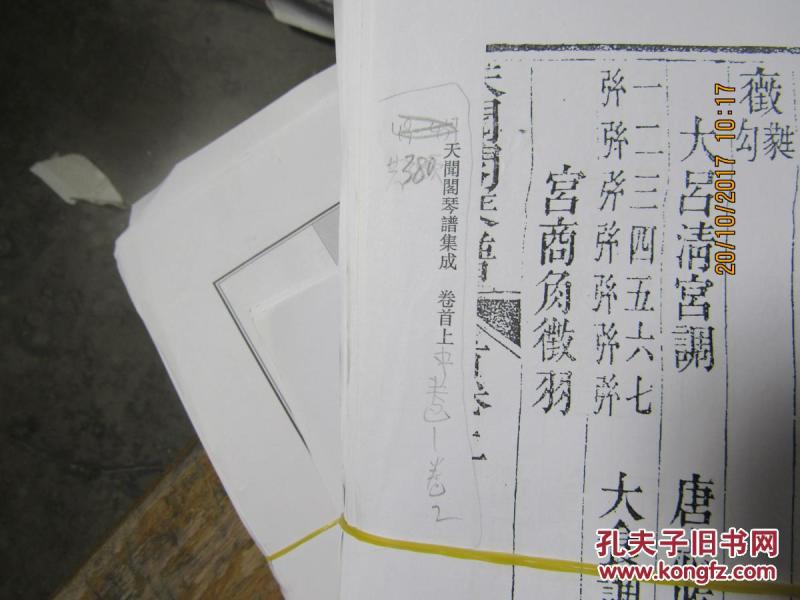 徵
蕤
勾
大呂清宮調
唐
一二三四五六七
弦弦弦弦弦弦弦
大食調
宮商角徵羽
天聞閣琴譜集成 卷首上
中 卷1 卷2
共380
20/10/2017 10:17
孔夫子旧书网
www.kongfz.com